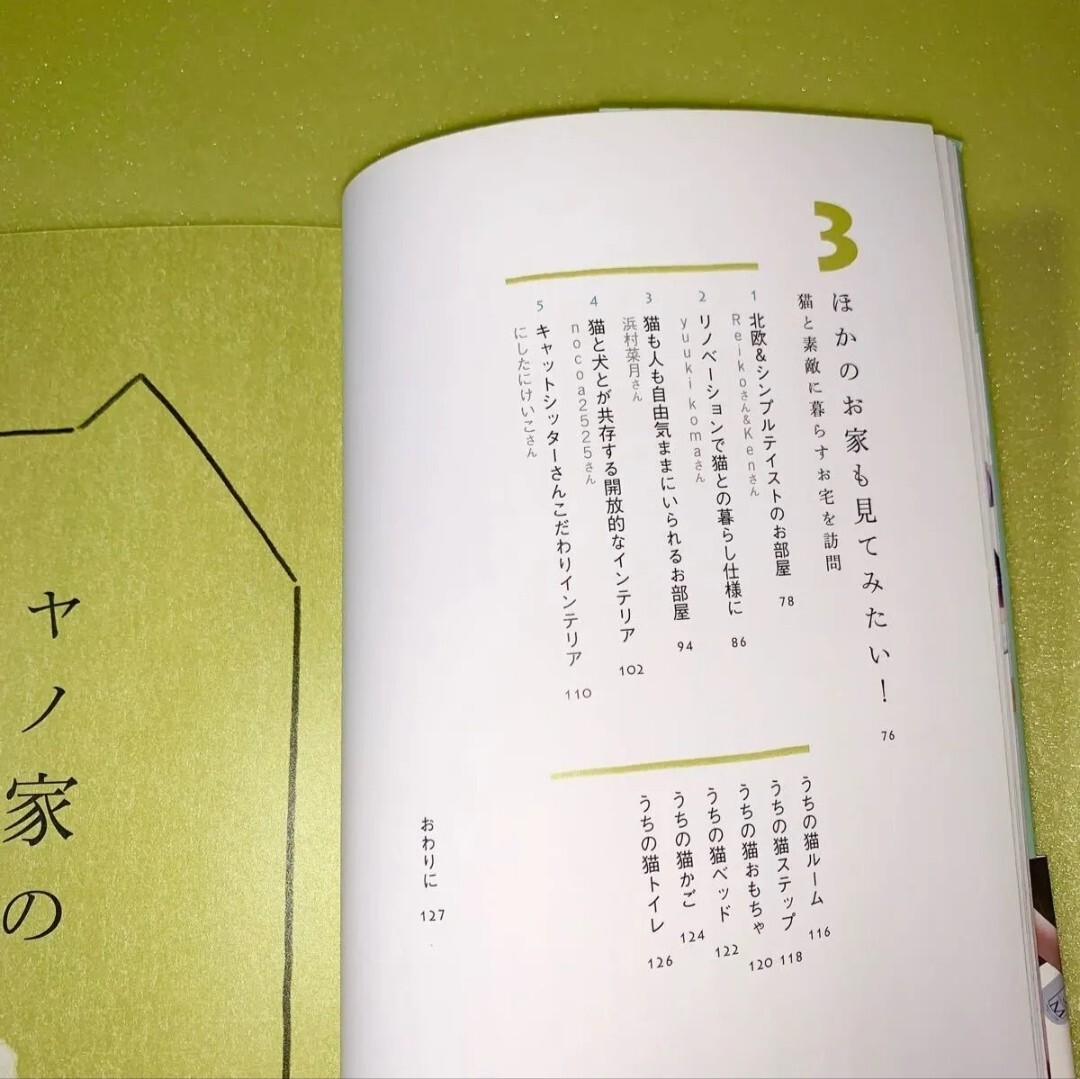 3
ほかのお家も見てみたい！ 76
猫と素敵に暮らすお宅を訪問
1 北欧&シンプルテイストのお部屋 78
Reikoさん&Kenさん
2 リノベーションで猫との暮らし仕様に 86
yuukikomaさん
3 猫も人も自由気ままにいられるお部屋 94
浜村菜月さん
4 猫と犬とが共存する開放的なインテリア 102
nocoa2525さん
5 キャットシッターさんこだわりインテリア 110
にしたにけいこさん
うちの猫ルーム 116
うちの猫ステップ 118
うちの猫おもちゃ 120
うちの猫ベッド 122
うちの猫かご 124
うちの猫トイレ 126
おわりに 127
ヤノ家の